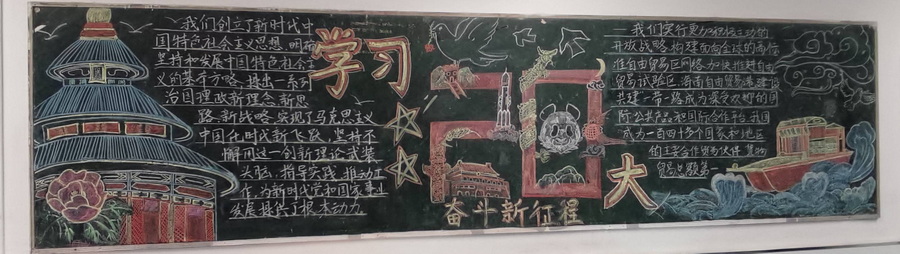 我们创立了新时代中
国特色社会主义思想,明确
坚持和发展中国特色社会主
义的基本方略,提出一系列
治国理政新理念、新思
路、新战略,实现了马克思主义
中国化时代新飞跃,坚持不
懈用这一创新理论武装
头脑、指导实践、推动工
作,为新时代党和国家事业
发展提供了根本动力。
学习
20
大
奋斗新征程
我们实行更加积极主动的
开放战略,构建面向全球的高标
准自由贸易区网络,加快推进自由
贸易试验区、海南自由贸易港建设
共建一带一路成为深受欢迎的国
际公共产品和国际合作平台。我国
成为一百四十多个国家和地区
的主要合作贸易伙伴,货物
贸易总额第一